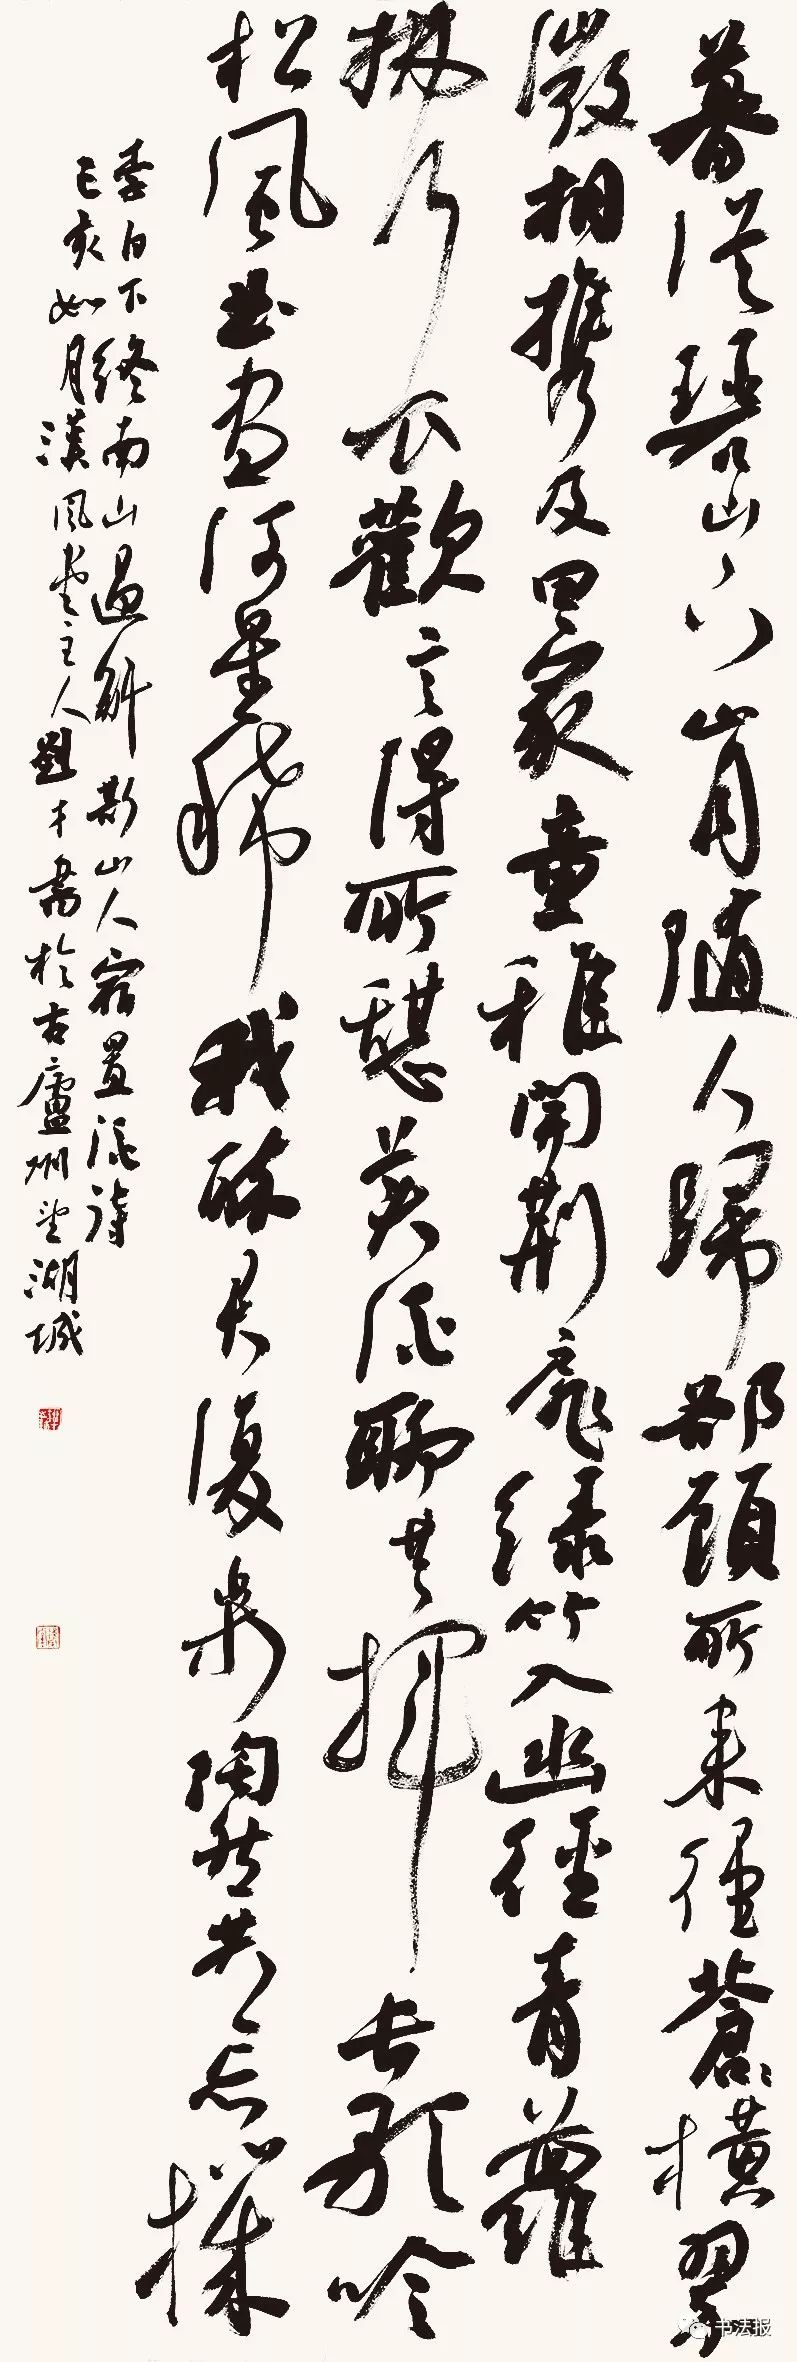 暮從碧山下山月隨人歸卻顧所來徑蒼蒼橫翠
微相携及田家童稚開荆扉緑竹入幽徑青蘿
拂行衣歡言得所憩美酒聊共揮長歌吟
松風曲盡河星稀我醉君復樂陶然共忘機
李白下終南山過斛斯山人宿置酒詩
己亥如月漢風堂主人劉才書於古廬州望湖城
书法报